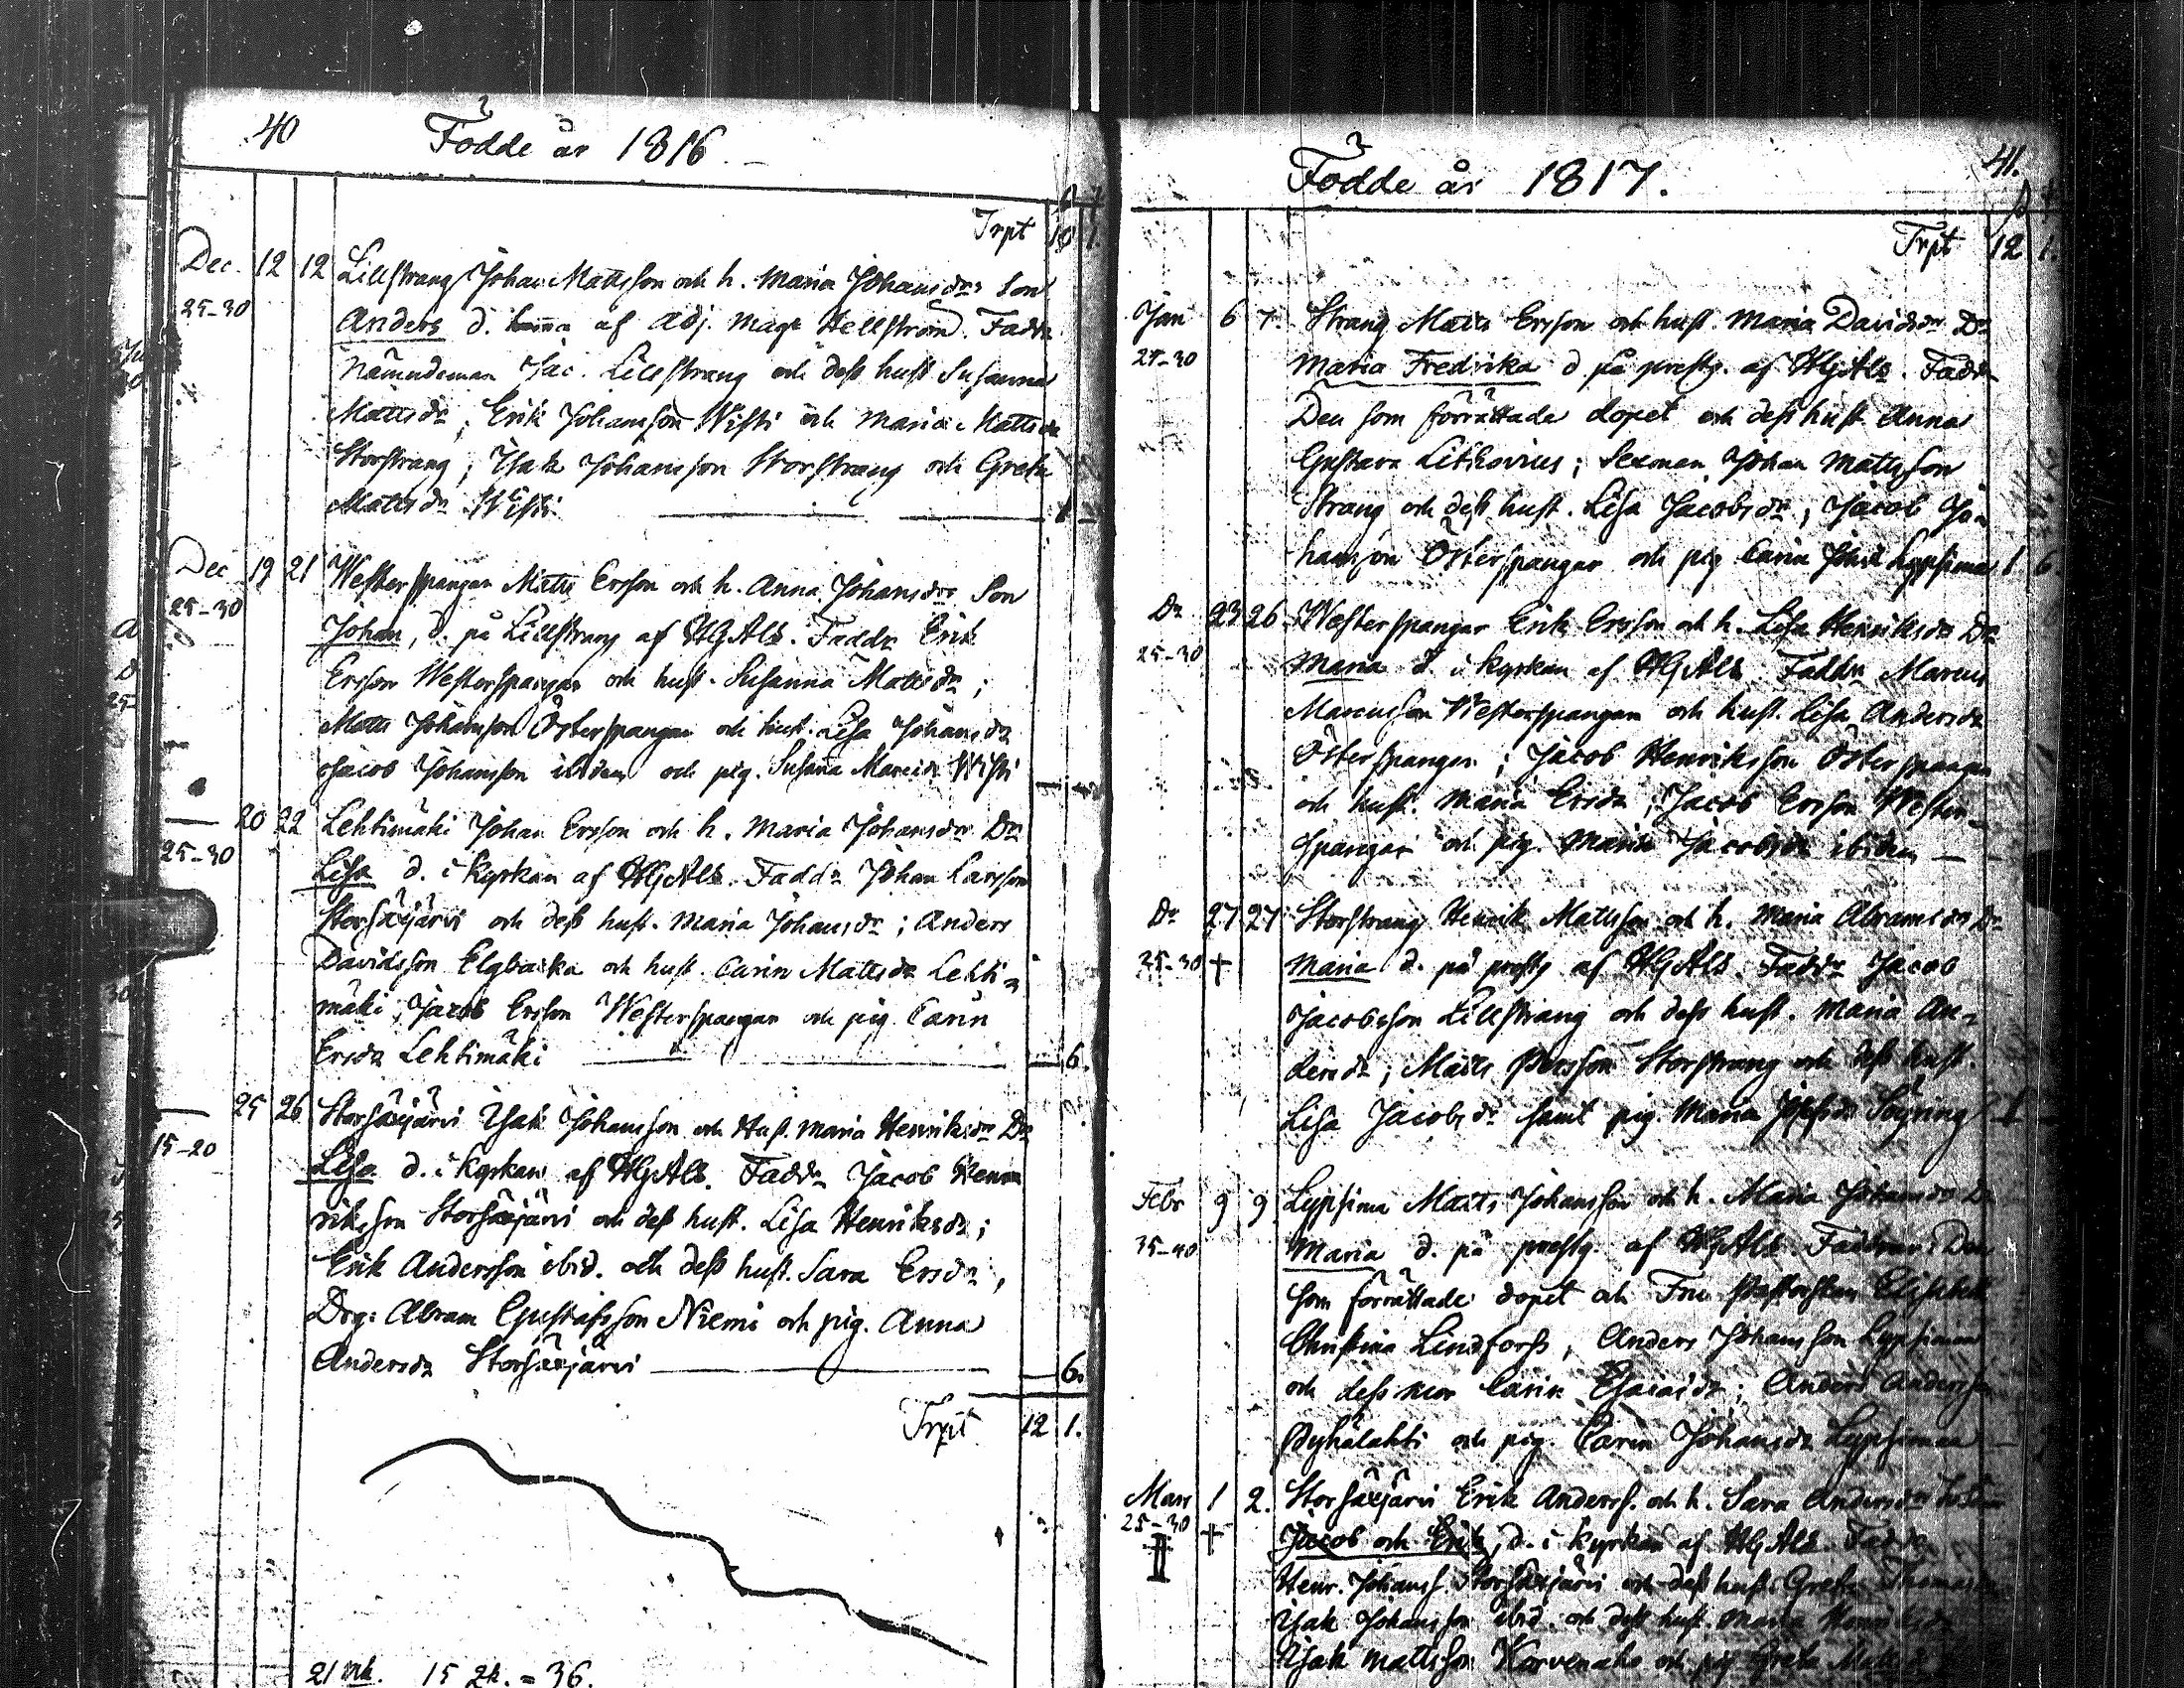 40 Födde år 1816
Trpt 10 1.
Dec. 12 12 Lillstrang Johan Mattsson och h. Maria Johansdrs Son
25-30 Anders d. af Adj. Mag. Hellström. Faddr
Nämndeman Jac. Lillstrang och dess hust Susanna
Mattsdr, Erik Johansson Wisti och Maria Mattsdr
Storstrang; Isak Johansson Storstrang och Greta
Mattsdr Wisti
Dec 19 21 Westerspangar Matts Ersson och h. Anna Johansdrs Son
25-30 Johan, d. på Lillstrang af HGAls. Faddr Erik
Ersson Westerspangar och hust. Susanna Mattsdr;
Matts Johansson Österspangar och hust. Lisa Johansdr
Jacob Johansson ibidem och pig. Susana Marcidr Wisti
— 20 22 Lehtimäki Johan Ersson och h. Maria Johansdrs Dr
25-30 Lisa d. i kyrkan af HGAls. Faddr Johan Larsson
Storsäxjärvi och dess hust. Maria Johansdr; Anders
Davidsson Elgbacka och hust. Carin Mattsdr Lehti-
mäki; Jacob Ersson Westerspangar och pig. Carin
Ersdr Lehtimäki — 6.
— 25 26 Storsäxjärvi Isak Johansson och Hust. Maria Henriksdrs Dr
15-20 Lisa d. i kyrkan af HGAls. Faddr Jacob Hen-
riksson Storsäxjärvi och dess hust. Lisa Henriksdr;
Erik Andersson ibid. och dess hust. Sara Ersdr,
Drg: Abram Gustafsson Niemi och pig. Anna
Andersdr Storsäxjärvi — 6.
Trpt 12. 1.
21 mk. 15 = 36.
Födde år 1817. 41.
Trpt 12 1.
Jan 6 7. Strang Matts Ersson och hust. Maria Davidsdrs Dr
25-30 Maria Fredrika d på prestg. af HGAls. Faddr
Den som förrättade dopet och dess hust Anna
Gustava Lithovius; Sexman Johan Mattsson
Strang och dess hust. Lisa Jacobsdr; Jacob Jo-
hansson Österspangar och pig Carin Lyysimaa 1 6
Dr 23 26 Westerspangar Erik Ersson och h. Lisa Henriksdrs Dr
25-30 Maria d. i kyrkan af HGAls Faddr Marcus
Marcusson Westerspangar och hust. Lisa Andersdr
Österspangar; Jacob Henriksson Österspangar
och hust. Maria Ersdr; Jacob Ersson Wester-
spangar och pig. Maria Jacobsdr ibidem —
Dr 27 27 Storstrang Henrik Mattsson och h. Maria Abramsdrs Dr
25-30 † Maria d. på prestg af HGAls. Faddr Jacob
Jacobsson Lillstrang och dess hust. Maria An-
dersdr; Matts Persson Storstrang och dess hust.
Lisa Jacobsdr samt pig. Maria Söyring
Febr 9 9. Lyysimaa Matts Johansson och h. Maria Johansdrs Dr
35-40 Maria d. på prestg. af HGAls. Faddrar Den
som förrättade dopet och Fru Pastorskan Elisabeth
Christina Lindforss, Anders Johansson Lyysimaa
och dess mor Carin Esaiaidr; Anders Andersson
Pyhälahti och pig. Carin Johansdr Lyysimaa —
Mars 1 2. Storsäxjärvi Erik Anderss. och h. Sara Andersdrs
25-30 † Jacob och Erik, d. i kyrkan af HGAls. Faddr
II Henr. Johanss. Storsäxjärvi och dess hust. Greta Thomasdr
Isak Johansson ibid. och dess hust. Maria Henriksdr
Isak Mattsson Korvenaho och pig Greta